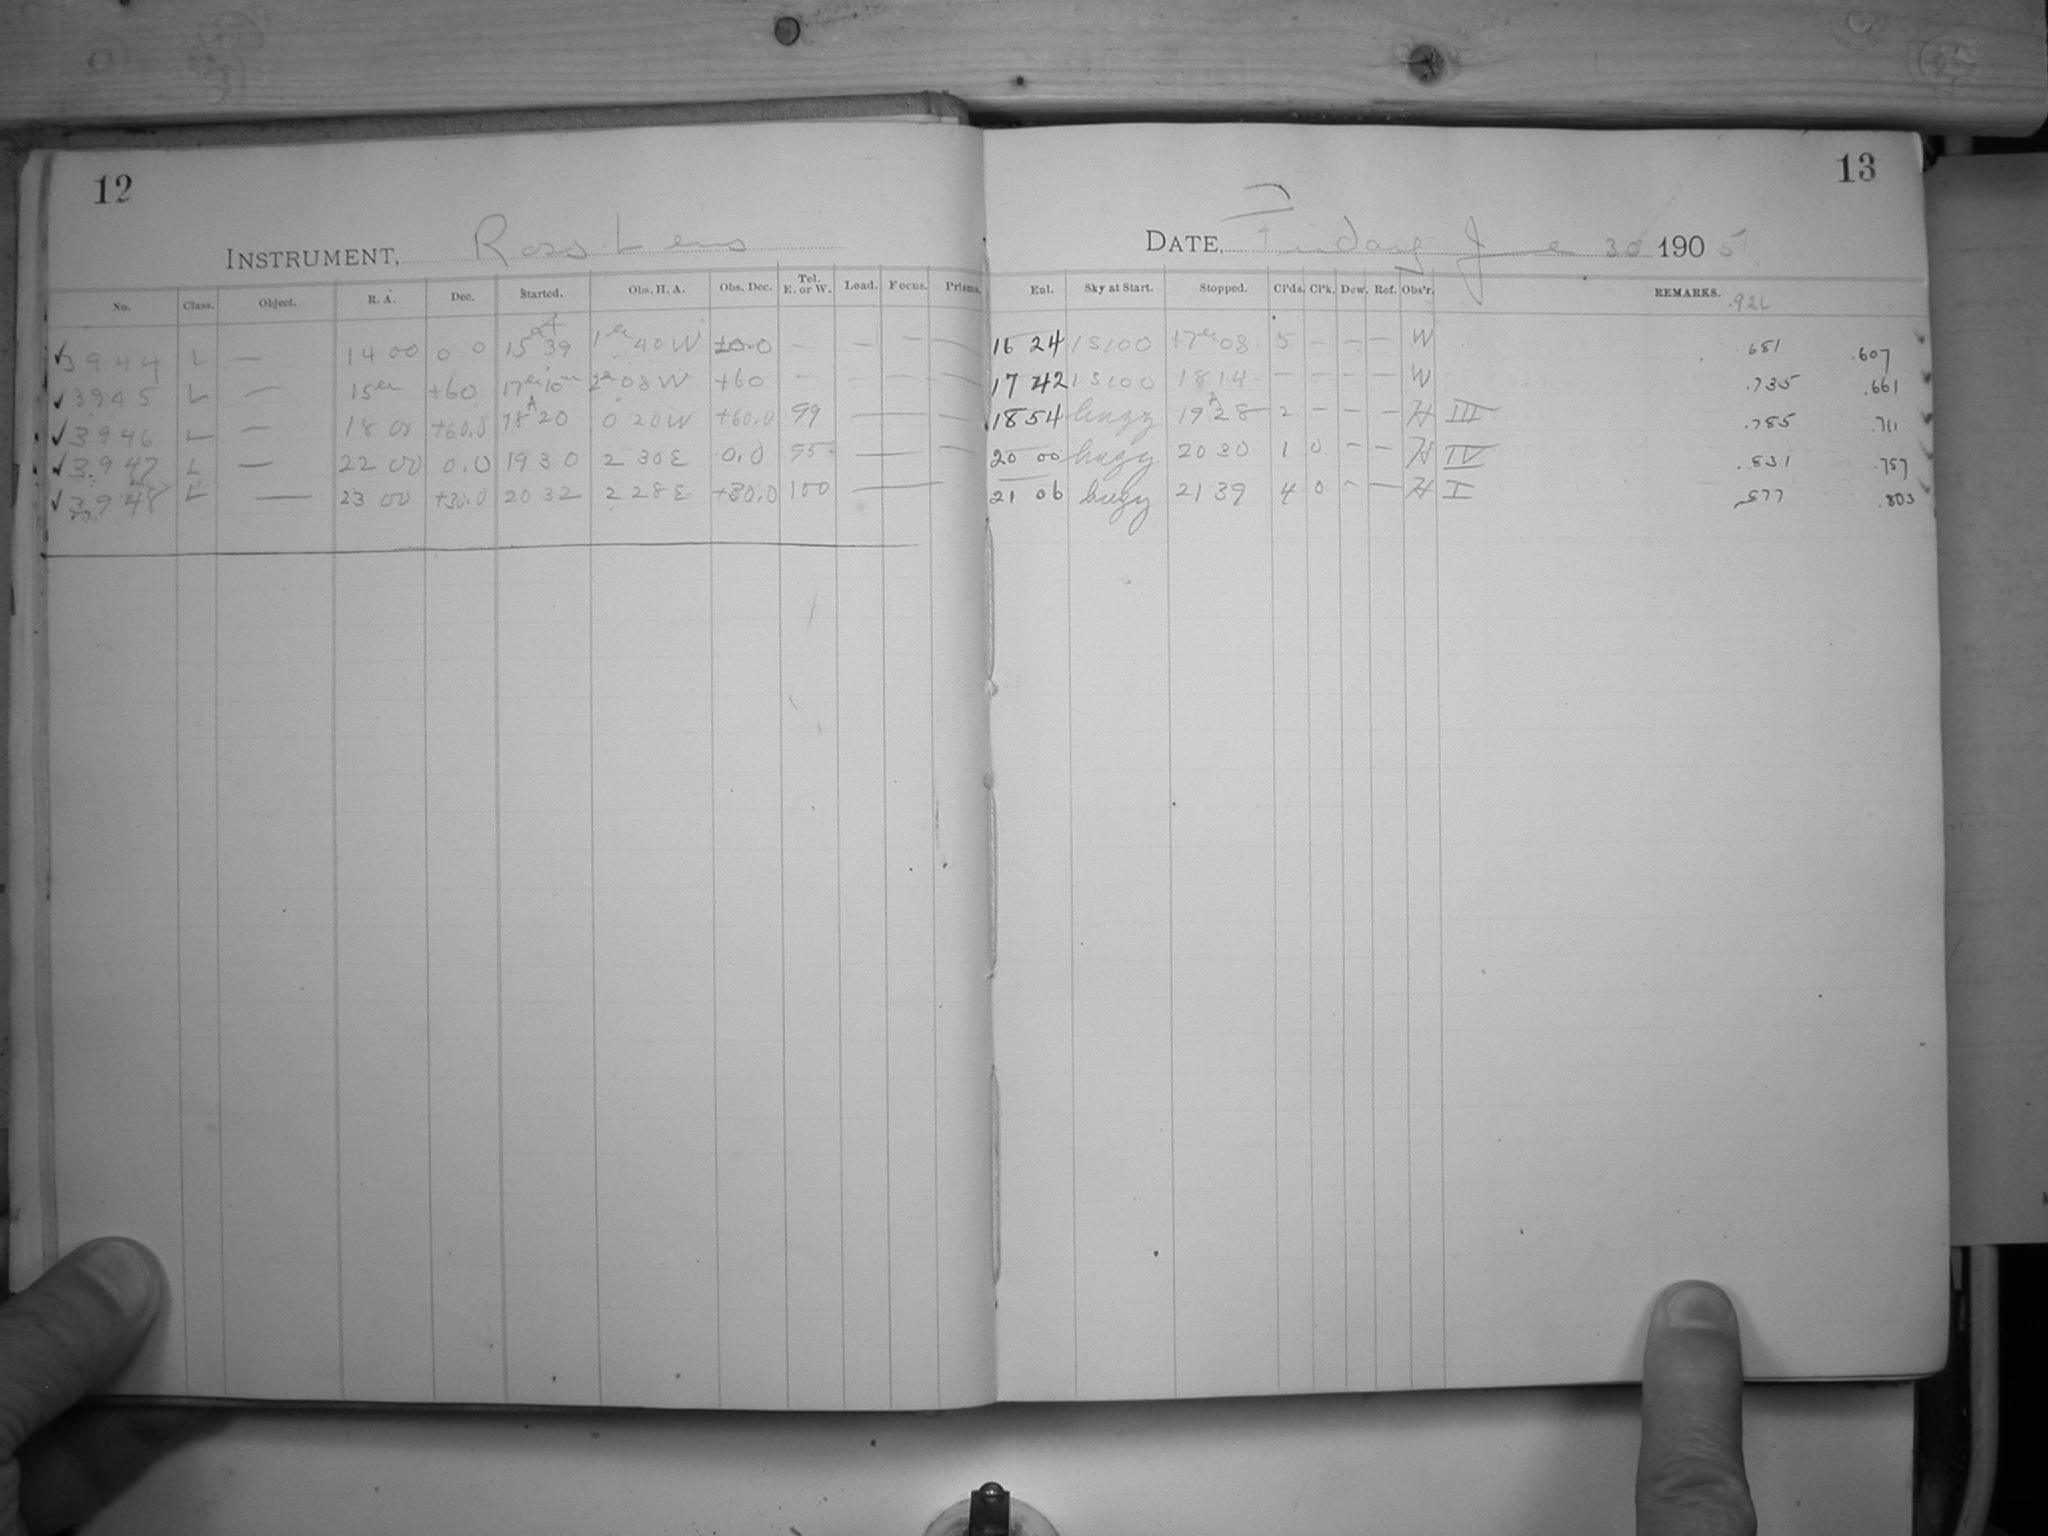 12
INSTRUMENT, Ross Lens
No. Class. Object. R. A. Dec. Started. Obs. H. A. Obs. Dec. Tel. E. or W. Load. Focus. Prisms.
✓3944 L — 14 00 0 0 15 39 1 40 W +0.0 — — — —
✓3945 L — 15 +60 17 10 2 08 W +60 — — — —
✓3946 L — 18 00 +60.0 18 20 0 20 W +60.0 99 — —
✓3947 L — 22 00 0.0 19 30 2 30 E 0.0 95 — —
✓3948 L — 23 00 +30.0 20 32 2 28 E +30.0 100 —
13
DATE, Friday June 30 1905
Ent. Sky at Start. Stopped. Cl'ds. Cl'k. Dew. Ref. Obs'r. REMARKS.
16 24 1S100 17 08 5 — — — W .651 .607
17 42 1S100 18 14 — — — — W .735 .661
18 54 hazy 19 28 2 — — — H III .785 .711
20 00 hazy 20 30 1 0 — — H IV .831 .757
21 06 hazy 21 39 4 0 — — H I .877 .803